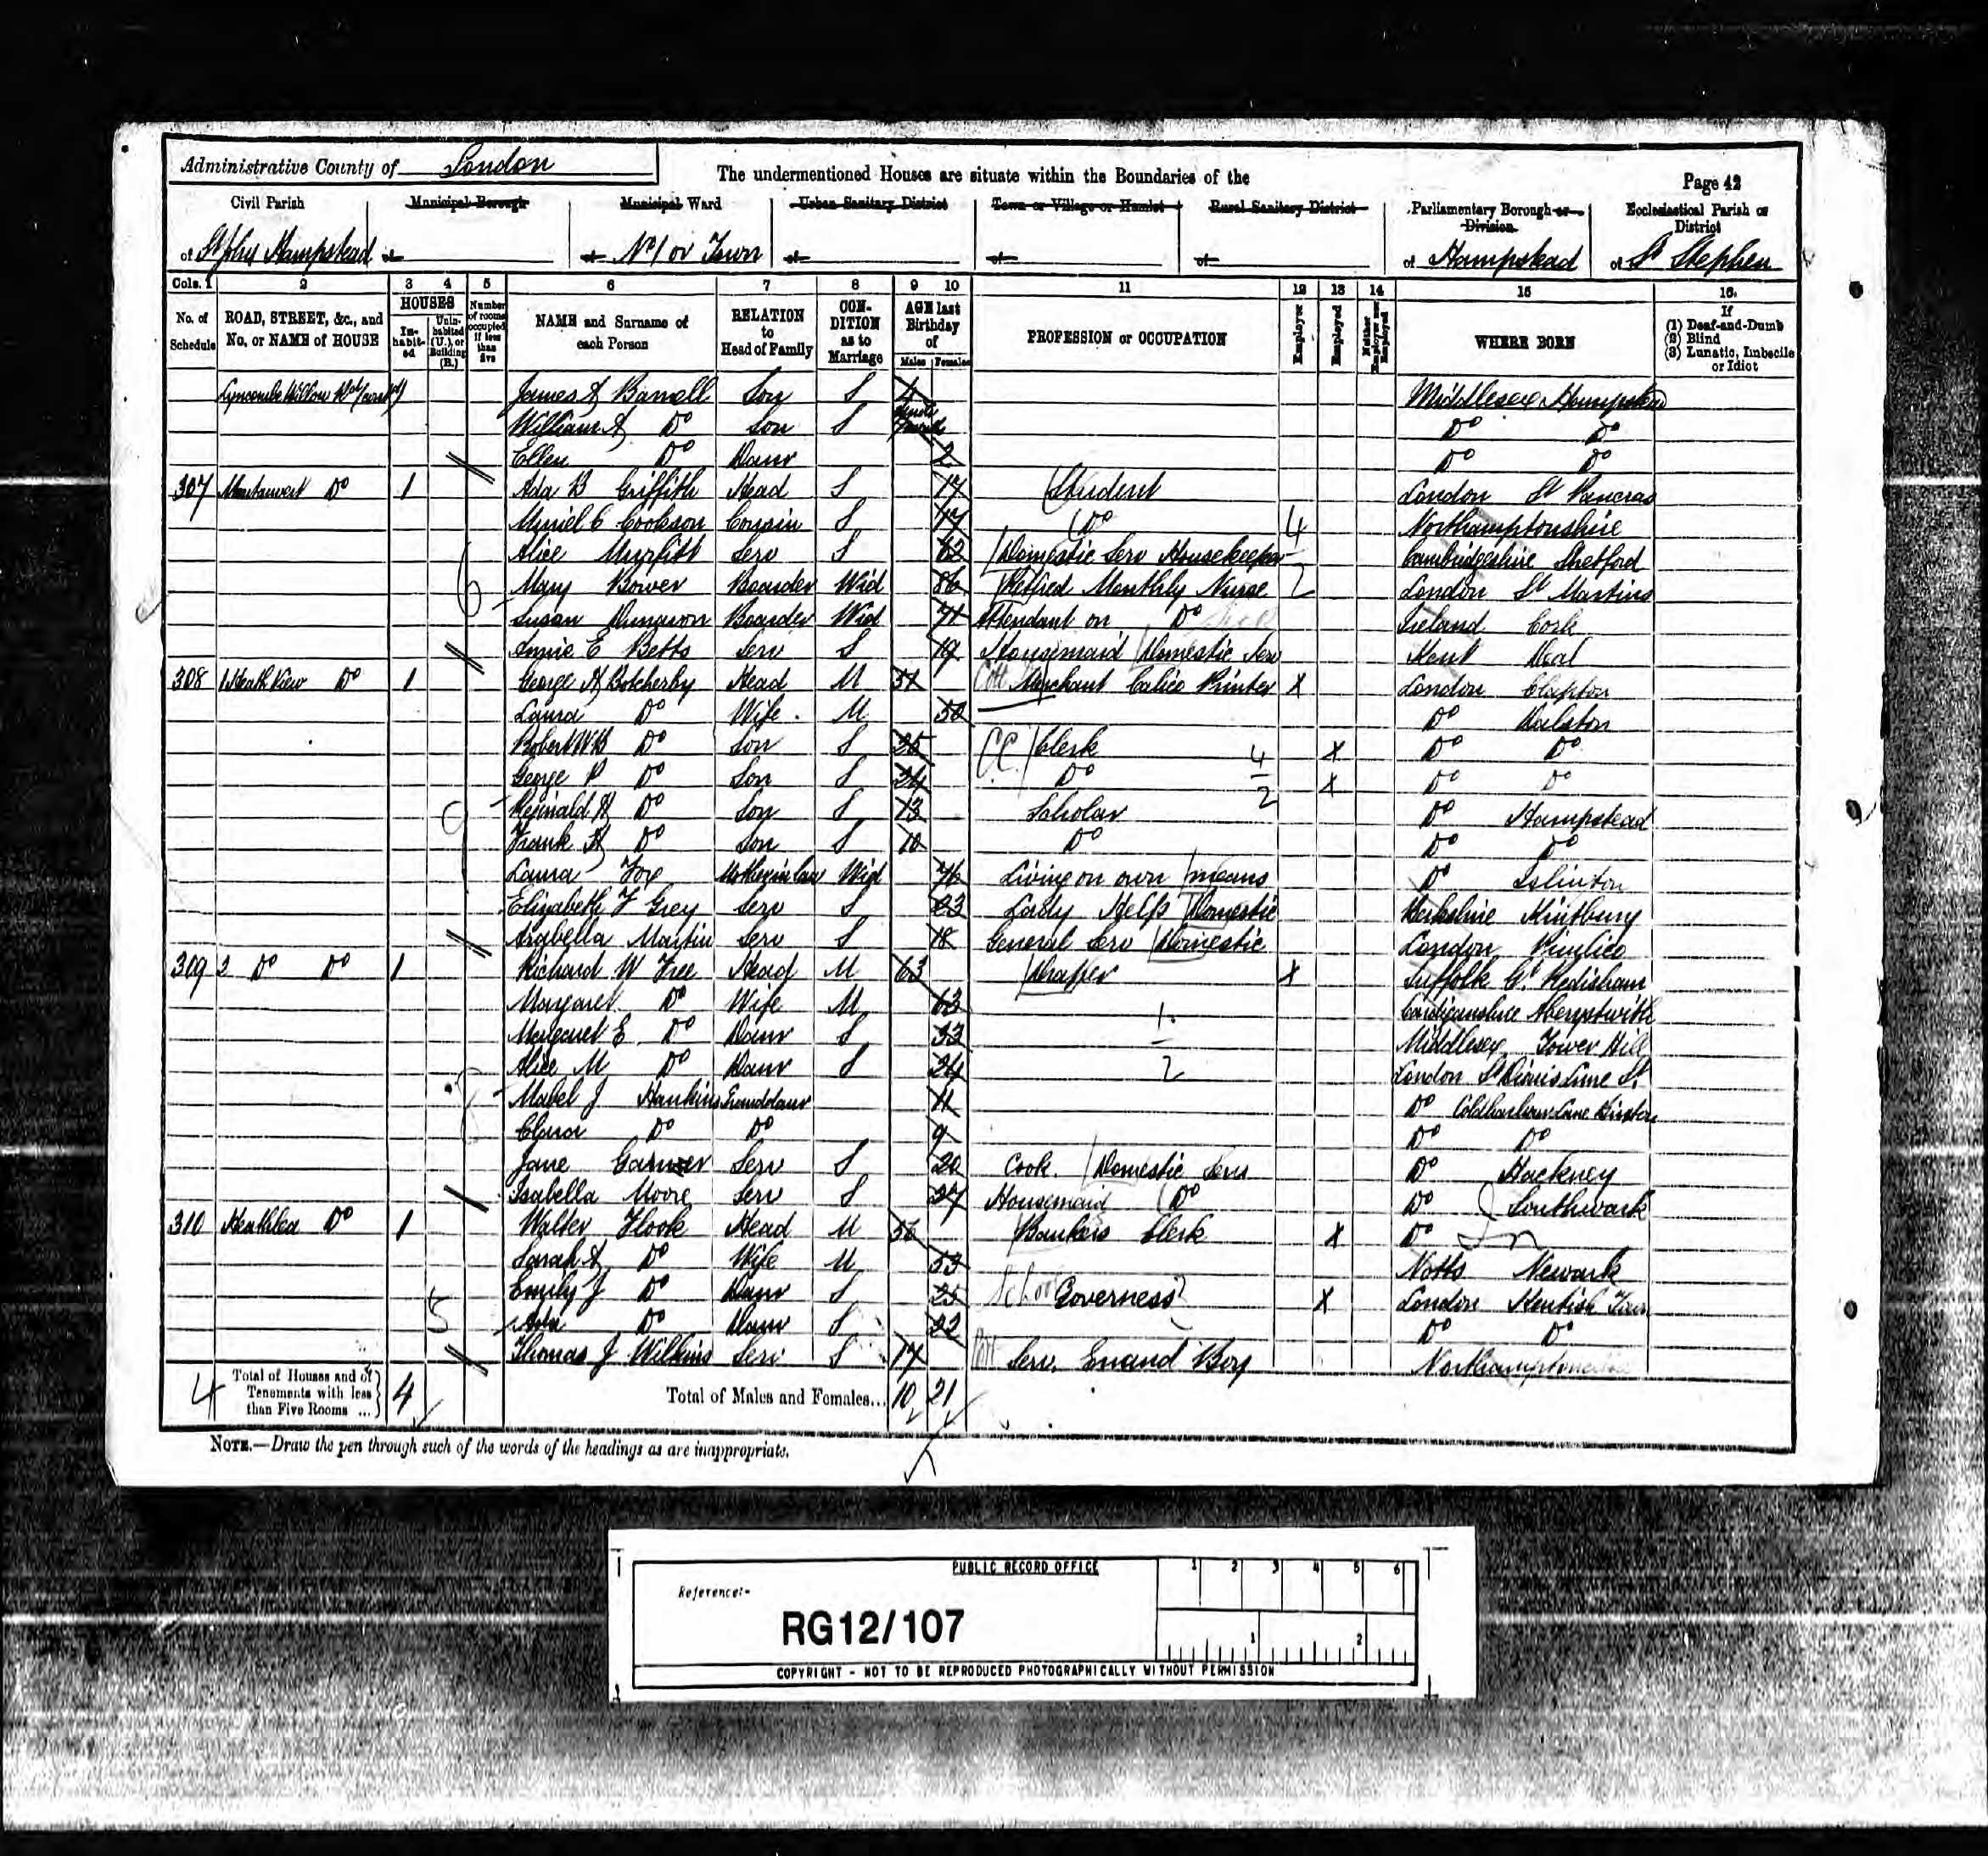 Administrative County of London
The undermentioned Houses are situate within the Boundaries of the
Page 42
Civil Parish
Municipal Borough
Municipal Ward
Urban Sanitary District
Town or Village or Hamlet
Rural Sanitary District
Parliamentary Borough or Division
Ecclesiastical Parish or District
of St Johns Hampstead of of No 1 or Town of of of of Hampstead of St Stephen
Cols. 1 2 3 4 5 6 7 8 9 10 11 12 13 14 15 16.
No. of Schedule
ROAD, STREET, &c., and No. or NAME of HOUSE
HOUSES
In-habit-ed
Unin-habited (U.), or Building (B.)
Number of rooms occupied if less than five
NAME and Surname of each Person
RELATION to Head of Family
CON-DITION as to Marriage
AGE last Birthday of
Males Females
PROFESSION or OCCUPATION
Employer
Employed
Neither Employer nor Employed
WHERE BORN
If
(1) Deaf-and-Dumb
(2) Blind
(3) Lunatic, Imbecile or Idiot
Lyncombe Willow Rd (contd) James A Son S 4 Middlesex Hampstead
William A Do Son S Do Do
Ellen Do Daur 2 Do Do
307 Do 1 Ada B Griffith Head S 17 Student London St Pancras
Muriel C Cookson Cousin S 17 Do 4 Northamptonshire
Alice Serv S 62 Domestic Serv Housekeeper Cambridgeshire
6 Mary Bower Boarder Wid 86 Retired Monthly Nurse 2 London St Martins
Susan Boarder Wid 71 Attendant on Do Ireland Cork
Annie E Betts Serv S 19 Housemaid Domestic Serv Kent Deal
308 1 Heath View Do 1 George H Botcherby Head M 51 Merchant Calico Printer X London Clapton
Laura Do Wife M 50 Do Dalston
Robert W B Do Son S 25 C.C. Clerk 4 X Do Do
George P Do Son S 24 Do 2 X Do Do
Reginald H Do Son S 13 Scholar Do Hampstead
9 Frank H Do Son S 10 Do Do Do
Laura Fox Mother in law Wid 76 Living on own means Do Islinton
Elizabeth F Grey Serv S 23 Lady Help Domestic Berkshire Kintbury
Arabella Martin Serv S 18 General Serv Domestic London Pimlico
309 2 Do Do 1 Richard W Free Head M 63 Draper X Suffolk Gt Redisham
Margaret Do Wife M 63 Cardiganshire Aberystwith
Margaret E Do Daur S 33 1 Middlesex Tower Hill
Alice M Do Daur S 24 2 London St Dionis Lime St
8 Mabel J Hankins Granddaur 11 Do Coldharbour Lane Brixton
Clara Do Do 9 Do Do
Jane Garner Serv S 20 Cook Domestic Serv Do Hackney
Isabella Moore Serv S 27 Housemaid Do Do Southwark
310 Heathlea Do 1 Walter Flook Head M 56 Bankers Clerk X Do
Sarah A Do Wife M 53 Notts Newark
Emily J Do Daur S 25 School Governess X London Kentish Town
5 Ada Do Daur S 22 Do Do
Thomas J Wilkins Serv S 17 Serv. Errand Boy Northamptonshire
4 Total of Houses and of Tenements with less than Five Rooms ... 4 Total of Males and Females... 10 21
NOTE.—Draw the pen through such of the words of the headings as are inappropriate.
PUBLIC RECORD OFFICE
1 2 3 4 5 6
Reference:-
RG12/107
1 2
COPYRIGHT - NOT TO BE REPRODUCED PHOTOGRAPHICALLY WITHOUT PERMISSION